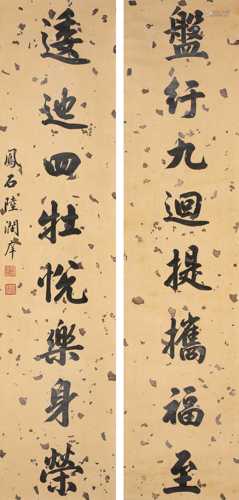 盤行九迴提攜福至
逶迆四牡悅樂身榮
鳳石陸潤庠